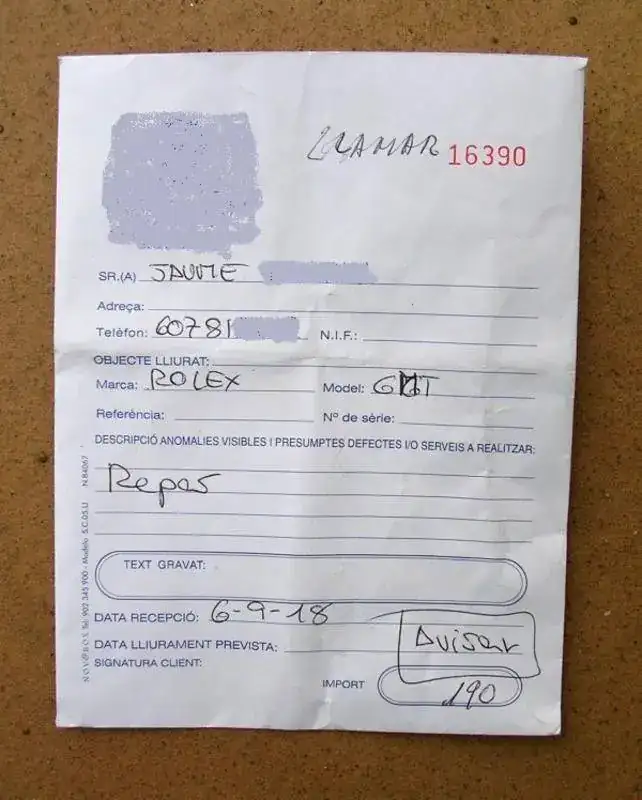 LLAMAR 16390
SR.(A) JAUME
Adreça:
Telèfon: 60781 N.I.F.:
OBJECTE LLIURAT:
Marca: ROLEX Model: GMT
Referència: Nº de sèrie:
DESCRIPCIÓ ANOMALIES VISIBLES I PRESUMPTES DEFECTES I/O SERVEIS A REALITZAR:
Repas
TEXT GRAVAT:
DATA RECEPCIÓ: 6-9-18
DATA LLIURAMENT PREVISTA: Avisar
SIGNATURA CLIENT:
IMPORT 190
NOV@BOS Tel. 902 345 900 - Modelo S.C.05.U N.84067